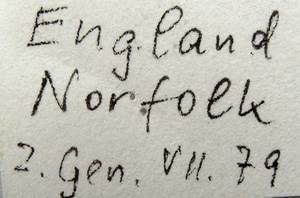 England
Norfolk
2. Gen. VII. 79